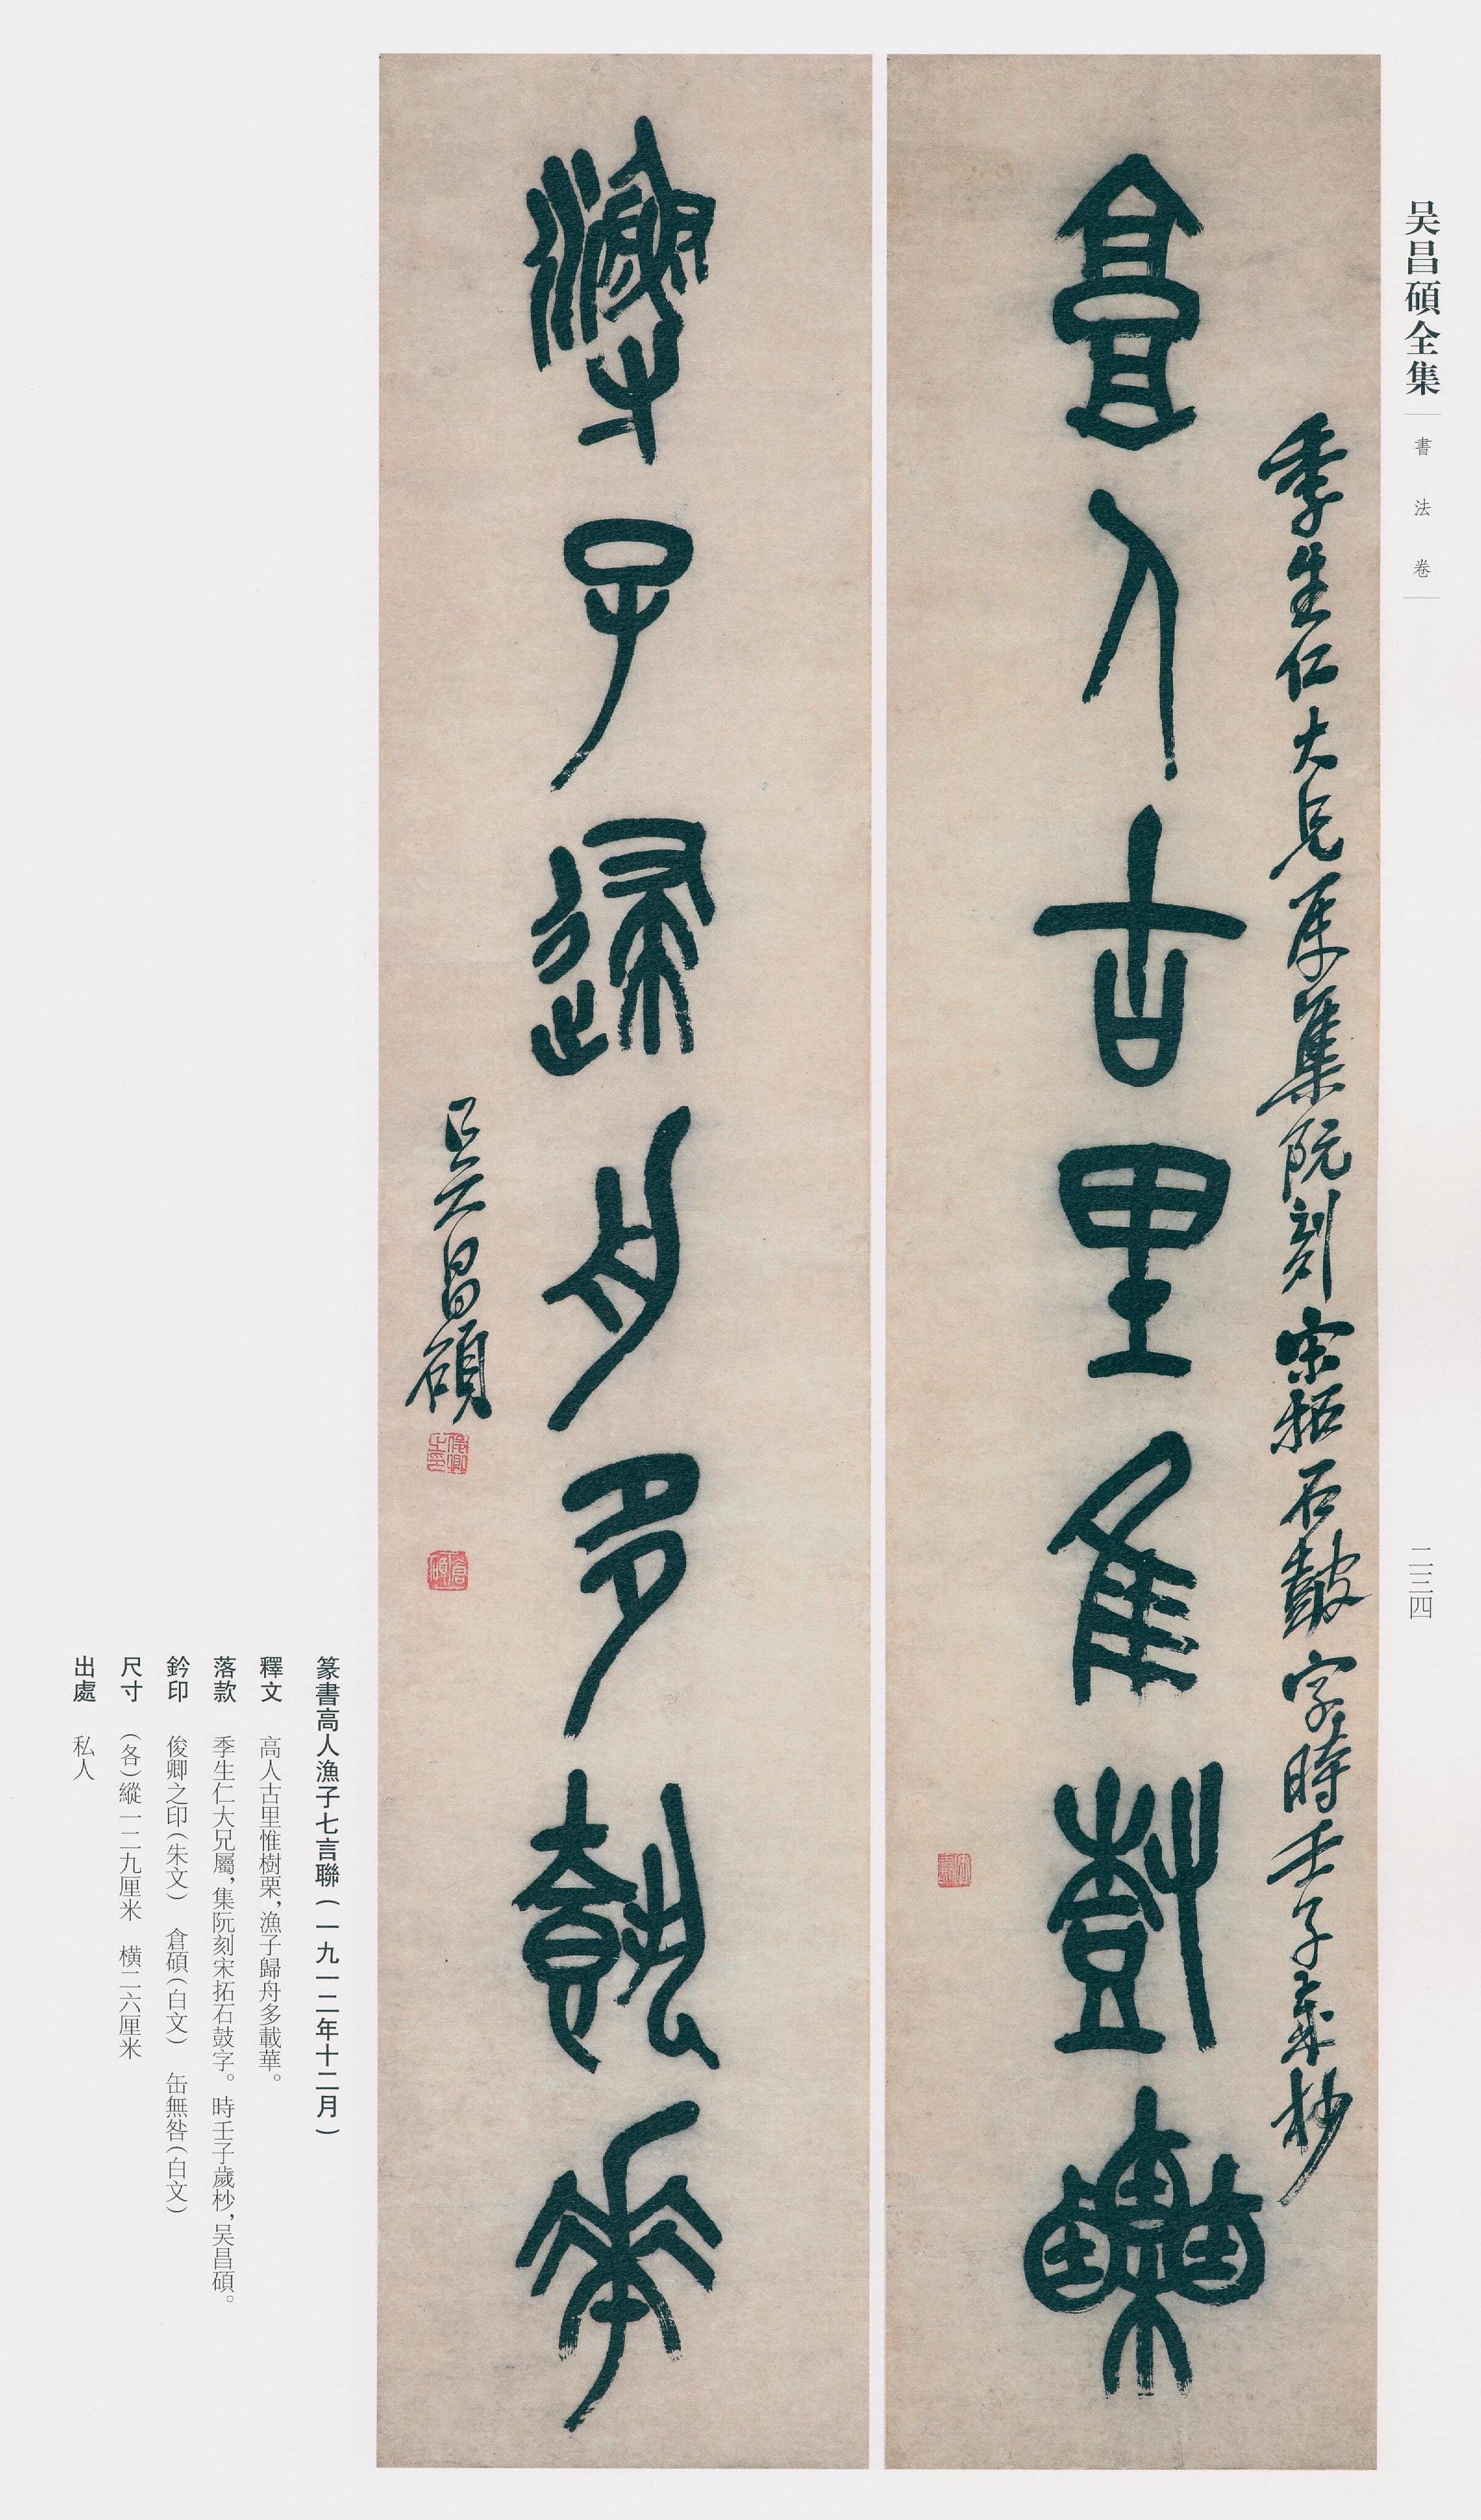 吴昌碩全集
書法卷
二三四
季生仁大兄属集阮刻宋拓石鼓字時壬子歲杪
高人古里隹樹栗
𤅊子歸舟多載華
吳昌碩
俊卿之印
倉碩
篆書高人漁子七言聯（一九一二年十二月）
釋文　高人古里惟樹栗，漁子歸舟多載華。
落款　季生仁大兄屬，集阮刻宋拓石鼓字。時壬子歲杪，吴昌碩。
鈐印　俊卿之印（朱文）　倉碩（白文）　缶無咎（白文）
尺寸　（各）縱一二九厘米　横二六厘米
出處　私人